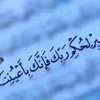 بِرْ لِحُكْمِ رَبِّكَ فَإِنَّكَ بِأَعْيُنِنَا